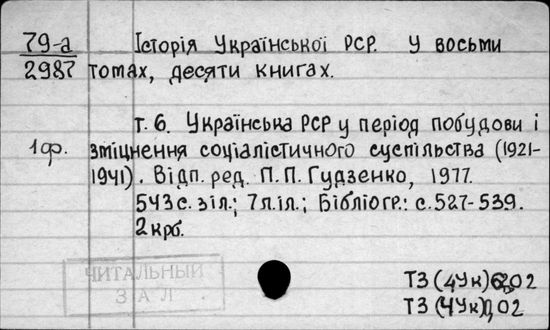 79-а Історія Української РСР. У восьми
2987 томах, десяти книгах.
т. 6. Українська РСР у період побудови і
1 ф. зміцнення соціалістичного суспільства (1921-
1941). Відп. ред. П. П. Гудзенко, 1977.
543 с. з іл.; 7 л. іл.; Бібліогр.: с. 527-539.
2 крб.
ЧИТАЛЬНЫЙ
ЗАЛ
Т3(4Ук)
Т3(4Ук)